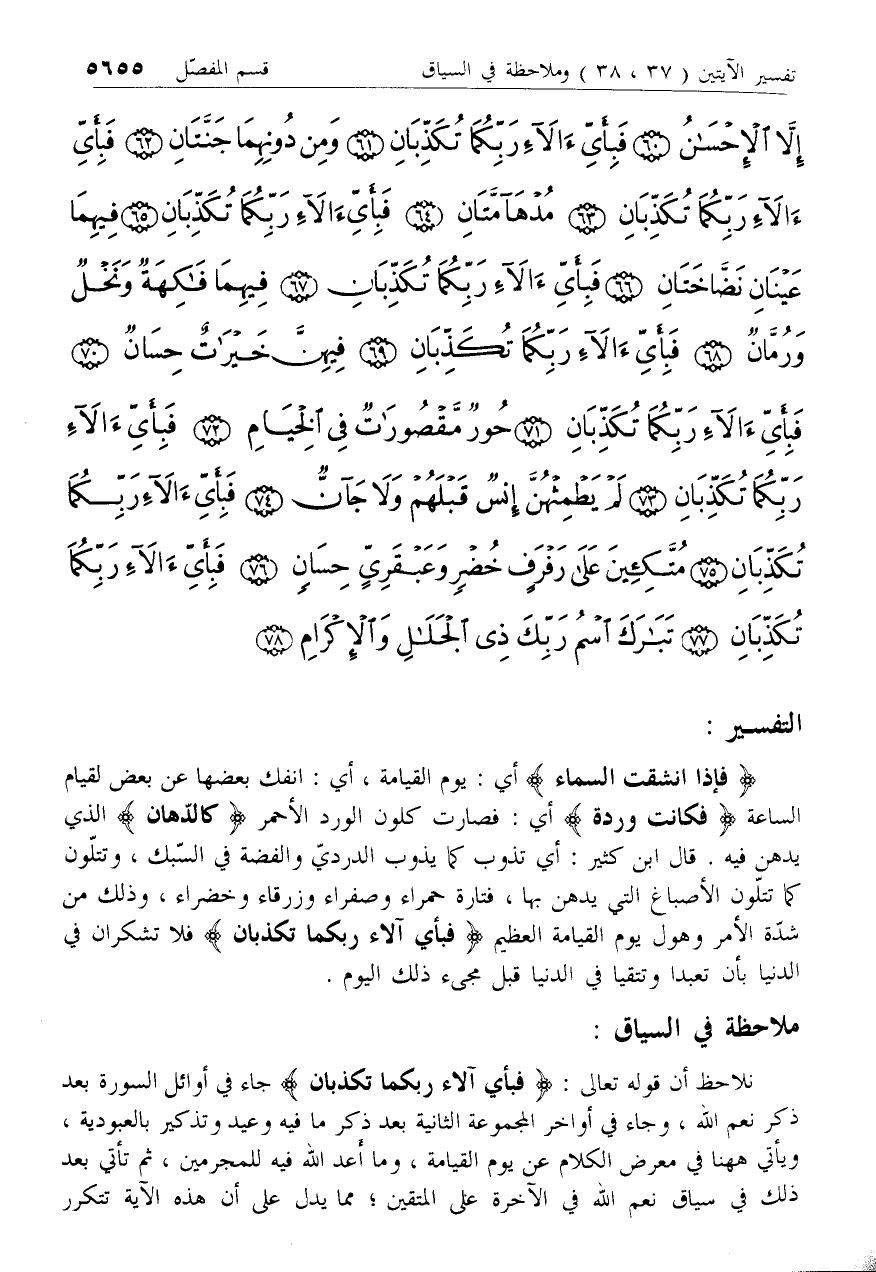 تفسير الآيتين ( ٣٧ ، ٣٨ ) وملاحظة في السياق قسم المفصّل ٥٦٥٥
إِلَّا ٱلْإِحْسَٰنُ ﴿٦٠﴾ فَبِأَيِّ ءَالَآءِ رَبِّكُمَا تُكَذِّبَانِ ﴿٦١﴾ وَمِن دُونِهِمَا جَنَّتَانِ ﴿٦٢﴾ فَبِأَيِّ
ءَالَآءِ رَبِّكُمَا تُكَذِّبَانِ ﴿٦٣﴾ مُدْهَآمَّتَانِ ﴿٦٤﴾ فَبِأَيِّ ءَالَآءِ رَبِّكُمَا تُكَذِّبَانِ ﴿٦٥﴾ فِيهِمَا
عَيْنَانِ نَضَّاخَتَانِ ﴿٦٦﴾ فَبِأَيِّ ءَالَآءِ رَبِّكُمَا تُكَذِّبَانِ ﴿٦٧﴾ فِيهِمَا فَٰكِهَةٌ وَنَخْلٌ
وَرُمَّانٌ ﴿٦٨﴾ فَبِأَيِّ ءَالَآءِ رَبِّكُمَا تُكَذِّبَانِ ﴿٦٩﴾ فِيهِنَّ خَيْرَٰتٌ حِسَانٌ ﴿٧٠﴾
فَبِأَيِّ ءَالَآءِ رَبِّكُمَا تُكَذِّبَانِ ﴿٧١﴾ حُورٌ مَّقْصُورَٰتٌ فِى ٱلْخِيَامِ ﴿٧٢﴾ فَبِأَيِّ ءَالَآءِ
رَبِّكُمَا تُكَذِّبَانِ ﴿٧٣﴾ لَمْ يَطْمِثْهُنَّ إِنسٌ قَبْلَهُمْ وَلَا جَآنٌّ ﴿٧٤﴾ فَبِأَيِّ ءَالَآءِ رَبِّكُمَا
تُكَذِّبَانِ ﴿٧٥﴾ مُتَّكِـِٔينَ عَلَىٰ رَفْرَفٍ خُضْرٍ وَعَبْقَرِيٍّ حِسَانٍ ﴿٧٦﴾ فَبِأَيِّ ءَالَآءِ رَبِّكُمَا
تُكَذِّبَانِ ﴿٧٧﴾ تَبَٰرَكَ ٱسْمُ رَبِّكَ ذِى ٱلْجَلَٰلِ وَٱلْإِكْرَامِ ﴿٧٨﴾
التفسير :
﴿ فإذا انشقت السماء ﴾ أي : يوم القيامة ، أي : انفك بعضها عن بعض لقيام
الساعة ﴿ فكانت وردة ﴾ أي : فصارت كلون الورد الأحمر ﴿ كالدّهان ﴾ الذي
يدهن فيه . قال ابن كثير : أي تذوب كما يذوب الدرديّ والفضة في السّبك ، وتتلّون
كما تتلّون الأصباغ التي يدهن بها ، فتارة حمراء وصفراء وزرقاء وخضراء ، وذلك من
شدّة الأمر وهول يوم القيامة العظيم ﴿ فبأي آلاء ربكما تكذبان ﴾ فلا تشكران في
الدنيا بأن تعبدا وتتقيا في الدنيا قبل مجىء ذلك اليوم .
ملاحظة في السياق :
نلاحظ أن قوله تعالى : ﴿ فبأي آلاء ربكما تكذبان ﴾ جاء في أوائل السورة بعد
ذكر نعم الله ، وجاء في أواخر المجموعة الثانية بعد ذكر ما فيه وعيد وتذكير بالعبودية ،
ويأتي ههنا في معرض الكلام عن يوم القيامة ، وما أعد الله فيه للمجرمين ، ثم تأتي بعد
ذلك في سياق نعم الله في الآخرة على المتقين ؛ مما يدل على أن هذه الآية تتكرر